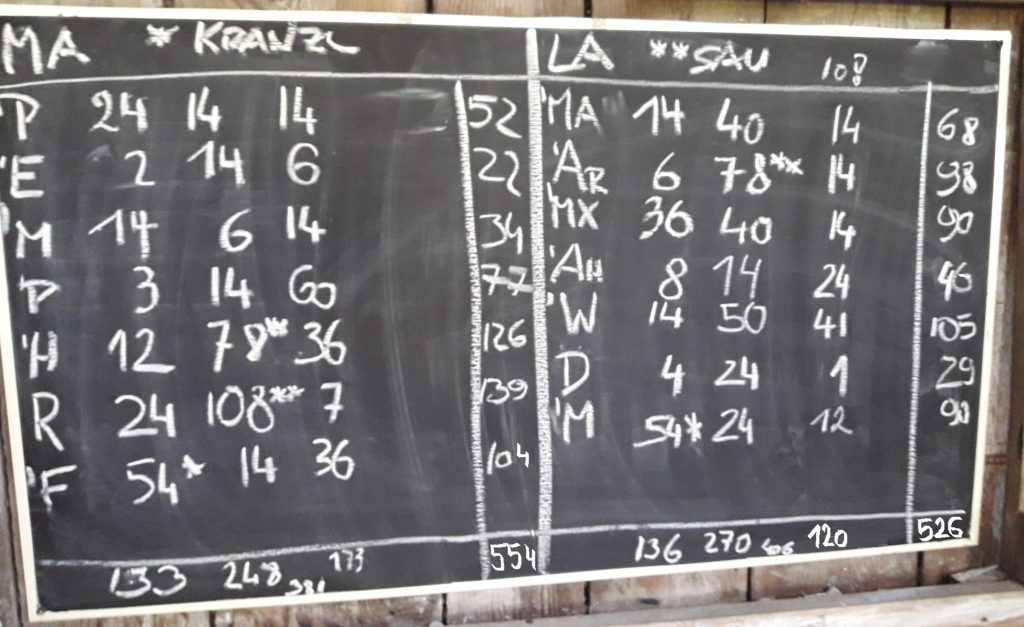 MA * KRANZL
P 24 14 14 52
'E 2 14 6 22
'M 14 6 14 34
'P 3 14 60 77
'H 12 78* 36 126
R 24 108** 7 139
'F 54* 14 36 104
133 248 381 173 554
LA **SAU 108
'MA 14 40 14 68
'AR 6 78** 14 98
'MX 36 40 14 90
'AH 8 14 24 46
'W 14 50 41 105
D 4 24 1 29
'M 54* 24 12 90
136 270 406 120 526